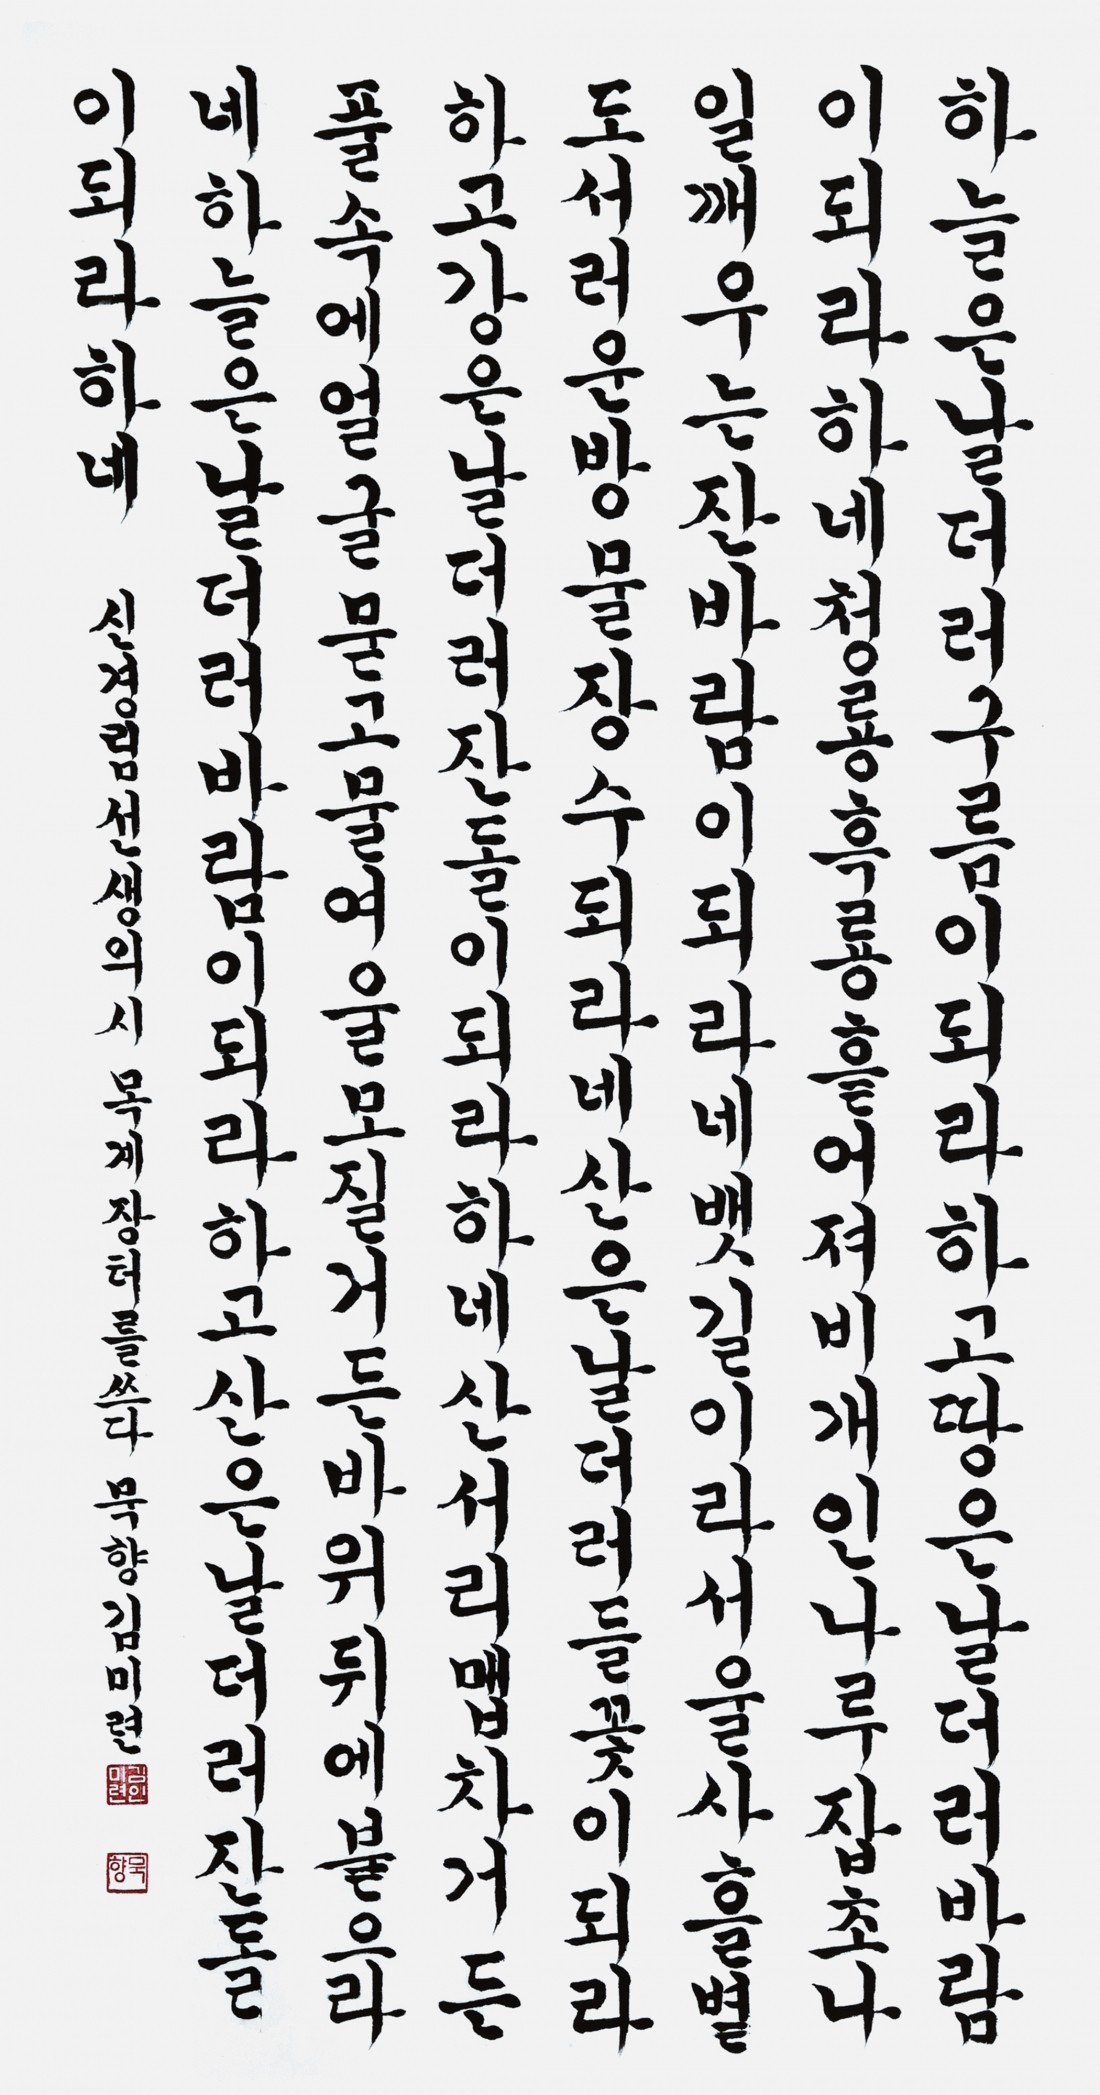 하늘은날더러구름이되라하고땅은날더러바람
이되라하네청룡흑룡흩어져비개인나루잡초나
일깨우는잔바람이되라네뱃길이라서울사흘볕
도서러운방물장수되라네산은날더러들꽃이되라
하고강은날더러잔돌이되라하네산서리맵차거든
풀속에얼굴묻고물여울모질거든바위뒤에붙으라
네하늘은날더러바람이되라하고산은날더러잔돌
이되라하네
신경림선생의시 목계장터를쓰다 묵향김미련
김미련인
묵향